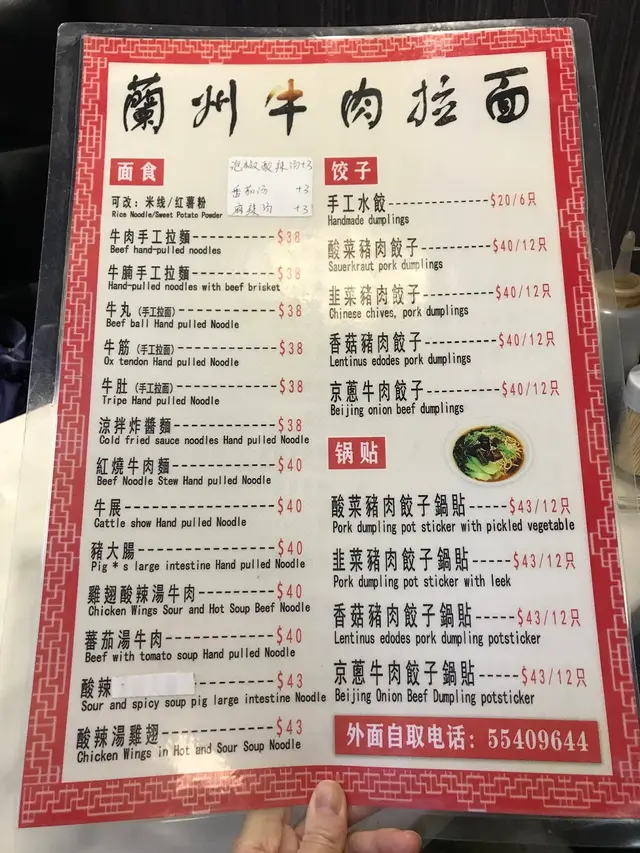 蘭州牛肉拉面
面食
泡椒酸辣湯+3
番茄湯 +3
麻辣湯 +3
可改：米线/红薯粉
Rice Noodle/Sweet Potato Powder
牛肉手工拉麵------------$38
Beef hand-pulled noodles
牛腩手工拉麵------------$38
Hand-pulled noodles with beef brisket
牛丸(手工拉面)------------$38
Beef ball Hand pulled Noodle
牛筋(手工拉面)------------$38
Ox tendon Hand pulled Noodle
牛肚(手工拉面)------------$38
Tripe Hand pulled Noodle
涼拌炸醬麵------------$38
Cold fried sauce noodles Hand pulled Noodle
紅燒牛肉麵------------$40
Beef Noodle Stew Hand pulled Noodle
牛展------------$40
Cattle show Hand pulled Noodle
豬大腸------------$40
Pig * s large intestine Hand pulled Noodle
雞翅酸辣湯牛肉------------$40
Chicken Wings Sour and Hot Soup Beef Noodle
蕃茄湯牛肉------------$40
Beef with tomato soup Hand pulled Noodle
酸辣------------$43
Sour and spicy soup pig large intestine Noodle
酸辣湯雞翅------------$43
Chicken Wings in Hot and Sour Soup Noodle
饺子
手工水餃------------$20/6只
Handmade dumplings
酸菜豬肉餃子---------$40/12只
Sauerkraut pork dumplings
韭菜豬肉餃子---------$40/12只
Chinese chives, pork dumplings
香菇豬肉餃子---------$40/12只
Lentinus edodes pork dumplings
京蔥牛肉餃子---------$40/12只
Beijing onion beef dumplings
锅贴
酸菜豬肉餃子鍋貼-----$43/12只
Pork dumpling pot sticker with pickled vegetable
韭菜豬肉餃子鍋貼-----$43/12只
Pork dumpling pot sticker with leek
香菇豬肉餃子鍋貼-----$43/12只
Lentinus edodes pork dumpling potsticker
京蔥牛肉餃子鍋貼-----$43/12只
Beijing Onion Beef Dumpling potsticker
外面自取电话：55409644